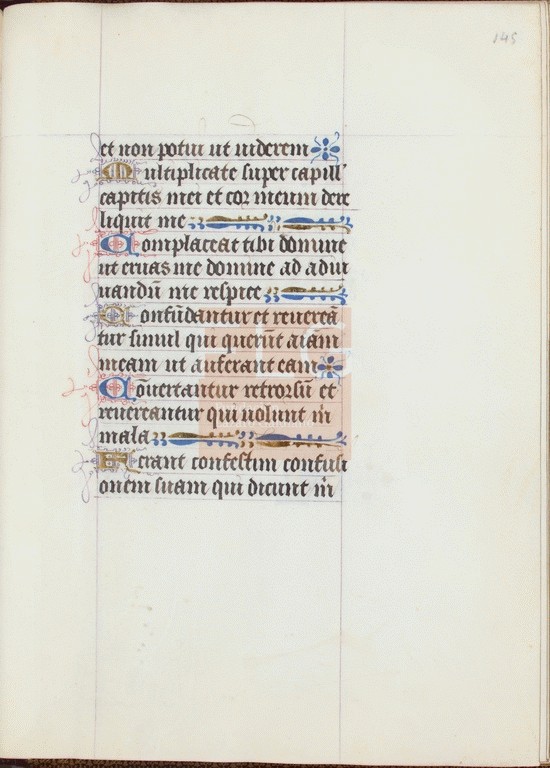 145
et non potui ut viderem
Multiplicate super capill'
capitis mei et coꝛ meum dere
liquit me
Complaceat tibi domine
ut eruas me domine ad adiu
uandū me respice
Confūdantur et reuereā
tur simul qui querūt aīam
meam ut auferant eam
Cōuertantur retroꝛsū et
reuereantur qui uolunt m̄
mala
Ferant confestim confusi
onem suam qui dicunt m̄